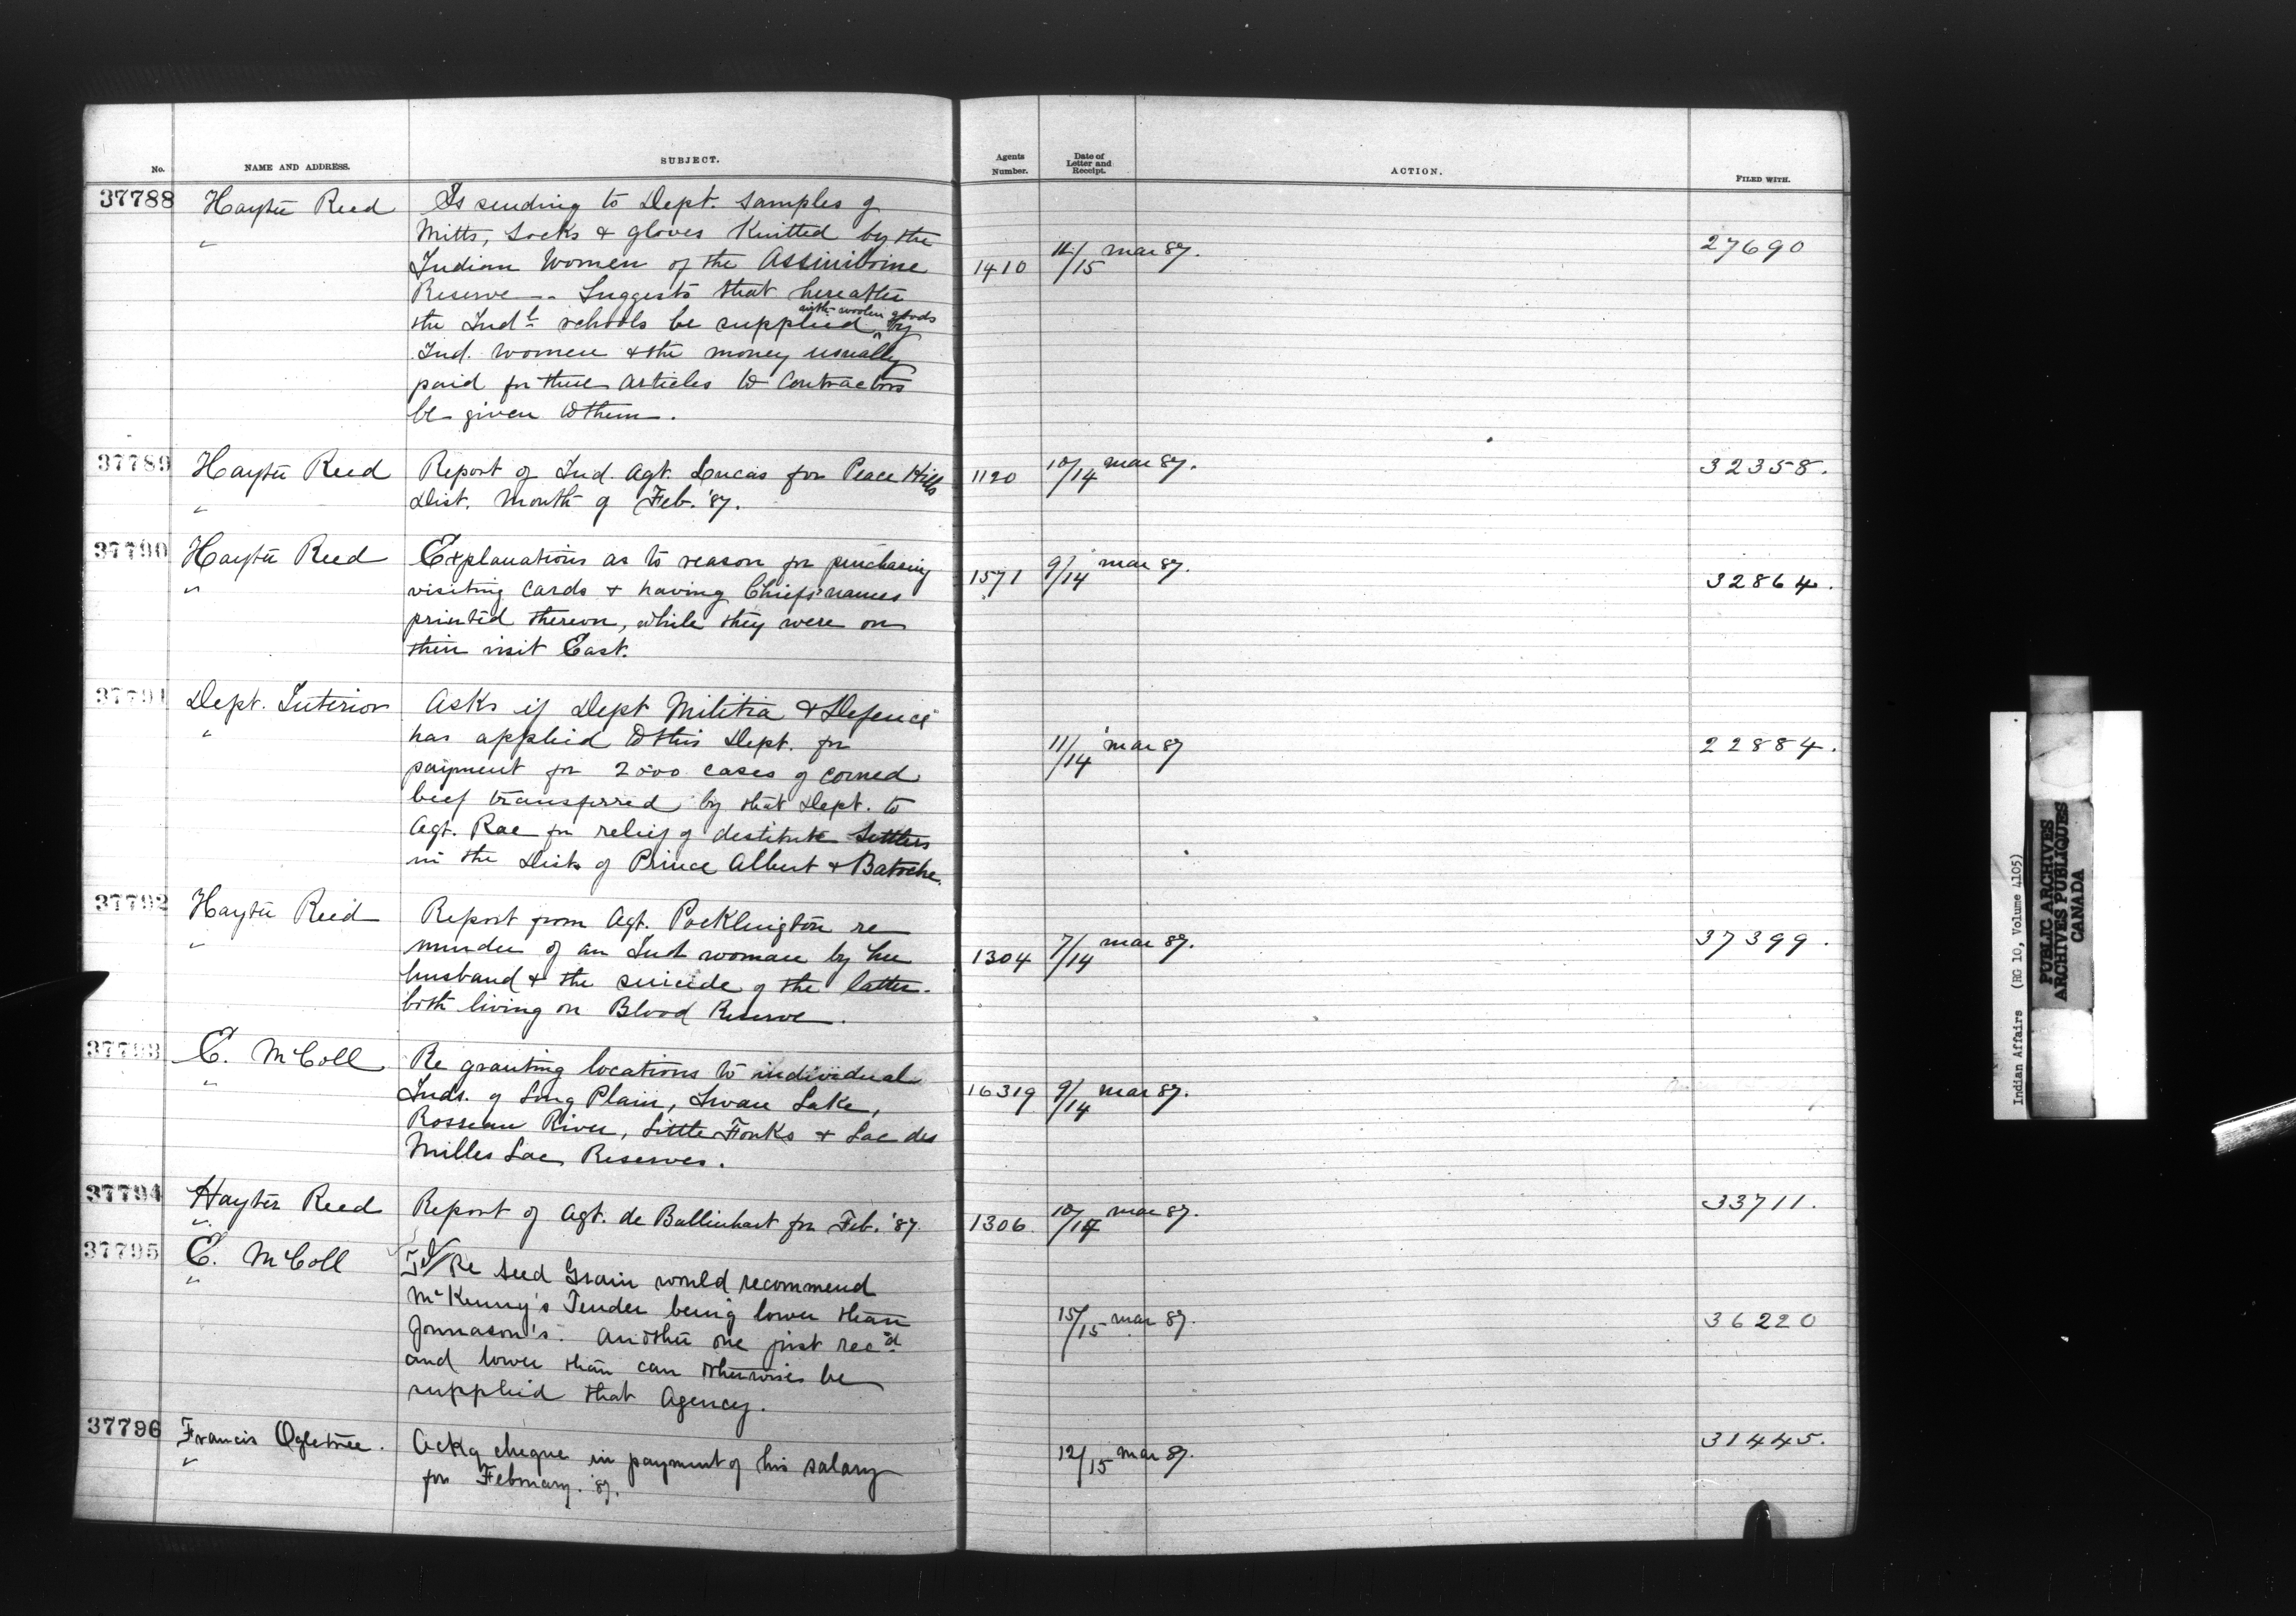 No.
NAME AND ADDRESS.
SUBJECT.
Agents
Number.
Date of
Letter and
Receipt.
ACTION.
FILED WITH.
37788 Hayter Reed
"
Is sending to Dept. samples of
Mitts, Socks & gloves Knitted by the
Indian Women of the Assiniboine
Reserve. Suggests that hereafter
with woolen goods
the Indl schools be supplied ^ by
Ind. women & the money usually
paid for these articles to Contractors
be given to them.
1410
/15 Mar 87.
27690
37789 Hayter Reed
"
Report of Ind. Agt. Lucas for Peace Hills
Dist. Month of Feb. '87.
1120
10/14 Mar 87.
32358.
37790 Hayter Reed
"
Explanations as to reason for purchasing
visiting cards & having Chiefs' names
printed thereon, while they were on
their visit East.
1571
9/14 Mar 87.
32864.
37791 Dept. Interior
"
Asks if Dept Militia & Defence
has applied to this Dept. for
payment for 2000 cases of corned
beef transferred by that Dept. to
Agt. Rae for relief of destitute Settlers
in the Dists of Prince Albert & Batoche.
11/14 Mar 87
22884.
37792 Hayter Reed
"
Report from Agt. Pocklington re
murder of an Ind woman by her
husband & the suicide of the latter.
both living on Blood Reserve.
1304
7/14 Mar 87.
37399.
37793 E. McColl
"
Re granting locations to individual
Inds. of Long Plain, Swan Lake,
Rosseau River, Little Forks & Lac des
Milles Lac Reserves.
16319
9/14 Mar 87.
37794 Hayter Reed
"
Report of Agt. de Ballinhart for Feb. '87.
1306
10/14 Mar 87.
33711.
37795 E. McColl
"
Re Seed Grain would recommend
McKenny's Tender being lower than
Jonnason's. Another one just recd
and lower than can otherwise be
supplied that Agency.
15/15 Mar 87.
36220
37796 Francis Ogletree.
"
Ackg cheque in payment of his salary
for February. '87.
12/15 Mar 87.
31445.
Indian Affairs (RG 10, Volume 4105)
PUBLIC ARCHIVES
ARCHIVES PUBLIQUES
CANADA